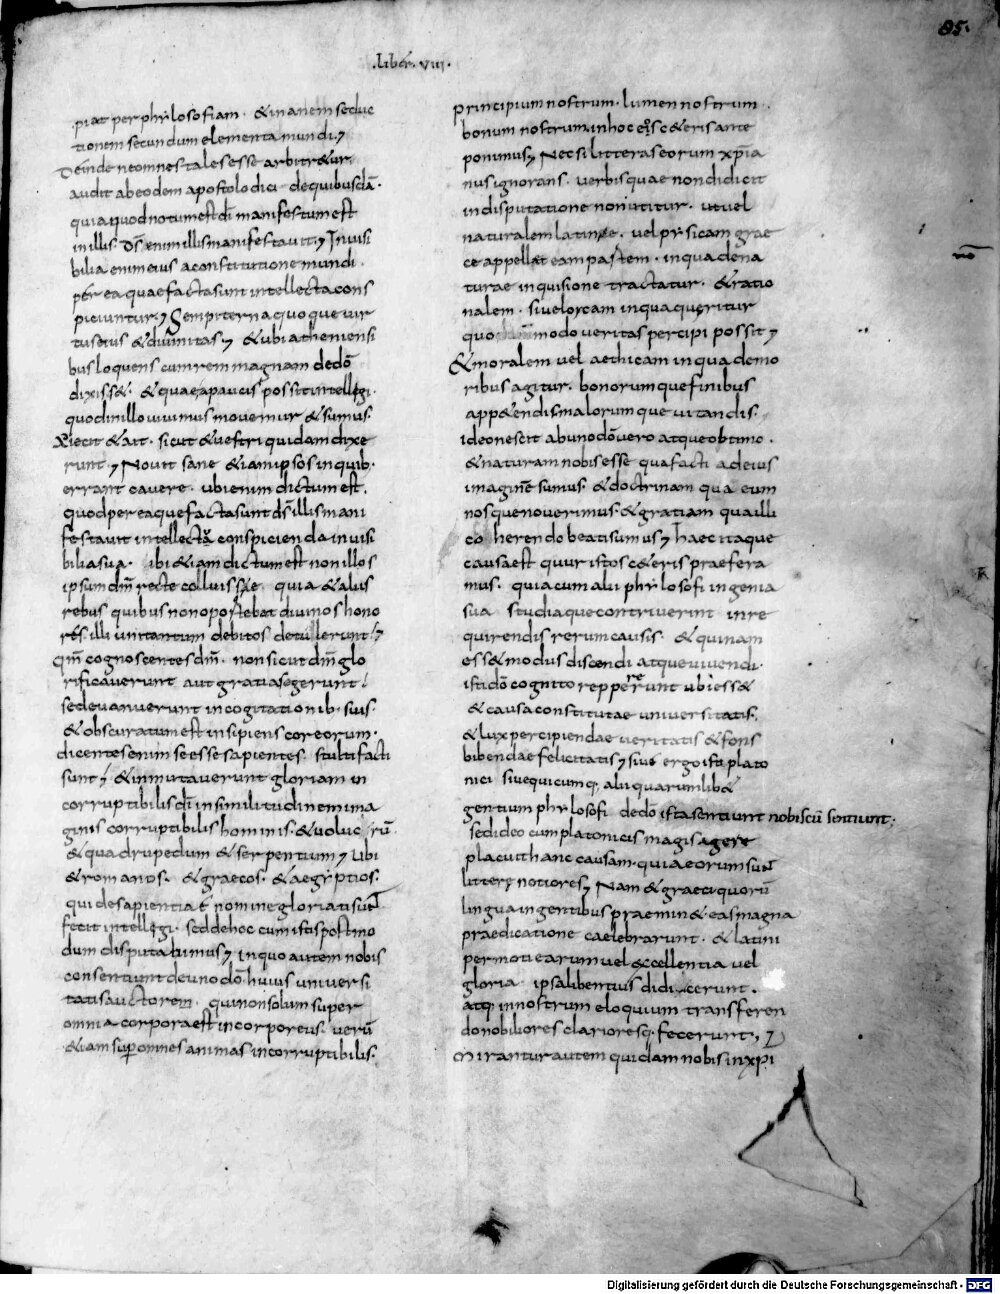 85.
.Liber. viii.
piat per phylosofiam. & inanem seduc
tionem secundum elementa mundi;
Deinde ne omnes tales esse arbitr&ur
audit ab eodem apostolo dici de quibusdā.
quia quod notum est dī manifestum est
in illis. Ds̄ enim illis manifestavit; Invisi
bilia enim eius a constitutione mundi.
per ea quae facta sunt intellecta cons
piciuntur; Sempiterna quoque vir
tus eius & divinitas; & ubi atheniensi
bus loquens cum rem magnam de dō
dixiss&. & quae a paucis possit intellegi.
quod in illo vivimus movemur & sumus.
Adiecit & ait. sicut & vestri quidam dixe
runt; Novit sane & iam ipsos in quib.
errant cavere. ubi enim dictum est.
quod per ea que facta sunt ds̄ illis mani
festavit intellecta conspicienda invisi
bilia sua. ibi & iam dictum est non illos
ipsum dm̄ recte colluisse. quia & aliis
rebus quibus non oportebat divinos hono
res illi uni tantum debitos detullerunt;
Qm̄ cognoscentes dm̄. non sicut dm̄ glo
rificaverunt aut gratias egerunt;
sed evanuerunt in cogitationib. suis.
& obscuratum est insipiens cor eorum.
dicentes enim se esse sapientes. stulti facti
sunt; & inmutaverunt gloriam in
corruptibilis dī in similitudinem ima
ginis corruptibilis hominis. & volucrū
& quadrupedum & serpentium; Ubi
& romanos. & graecos. & aegyptios.
qui de sapientiae nomine gloriati sunt
fecit intellegi. sed de hoc cum istis postmo
dum disputabimus; in quo autem nobis
consentiunt de uno dō huius universi
tatis auctorem. qui non solum super
omnia corpora est incorporeus. verū
& iam sup omnes animas incorruptibilis.
Principium nostrum. lumen nostrum.
bonum nostrum. in hoc eos c&eris ante
ponimus; Nec si litteras eorum xp̄ia
nus ignorans. verbis quae non didicit
in disputatione non utitur. ut vel
naturalem latine. vel pysicam grae
ce appellat eam partem. in qua de na
turae inquisione tractatur. & ratio
nalem. sive loicam in qua queritur
quo modo veritas percipi possit;
& moralem vel aethicam in qua de mo
ribus agitur. bonorum que finibus
app&endis malorum que vitandis.
ideo nescit ab uno dō vero atque obtimo.
& naturam nobis esse qua facti ad eius
imaginē sumus. & doctrinam qua eum
nosque noverimus. & gratiam qua illi
co herendo beati sumus; Haec itaque
causa est quur istos c&eris praefera
mus. quia cum alii phylosofi ingenia
sua studiaque contriverint in re
quirendis rerum causis. & quinam
ess& modus discendi atque vivendi.
isti dō cognito reppererunt ubi ess&
& causa constitutae universitatis.
& lux percipiendae veritatis & fons
bibendae felicitatis; sive ergo isti plato
nici sive quicumq. alii quarumlib&
gentium phylosofi de dō ista sentiunt nobiscū sentiunt;
sed ideo cum platonicis magis agere
placuit hanc causam. quia eorum sunt
litterę notiores; Nam & graeci quorū
lingua in gentibus praemin& eas magna
praedicatione caelebrarunt. & latini
permoti earum vel excellentia vel
gloria ipsa libentius didicerunt.
atq. in nostrum eloquium transferen
do nobiliores clarioresq. fecerunt;
Mirantur autem quidam nobis in xpi
Digitalisierung gefördert durch die Deutsche Forschungsgemeinschaft - DFG